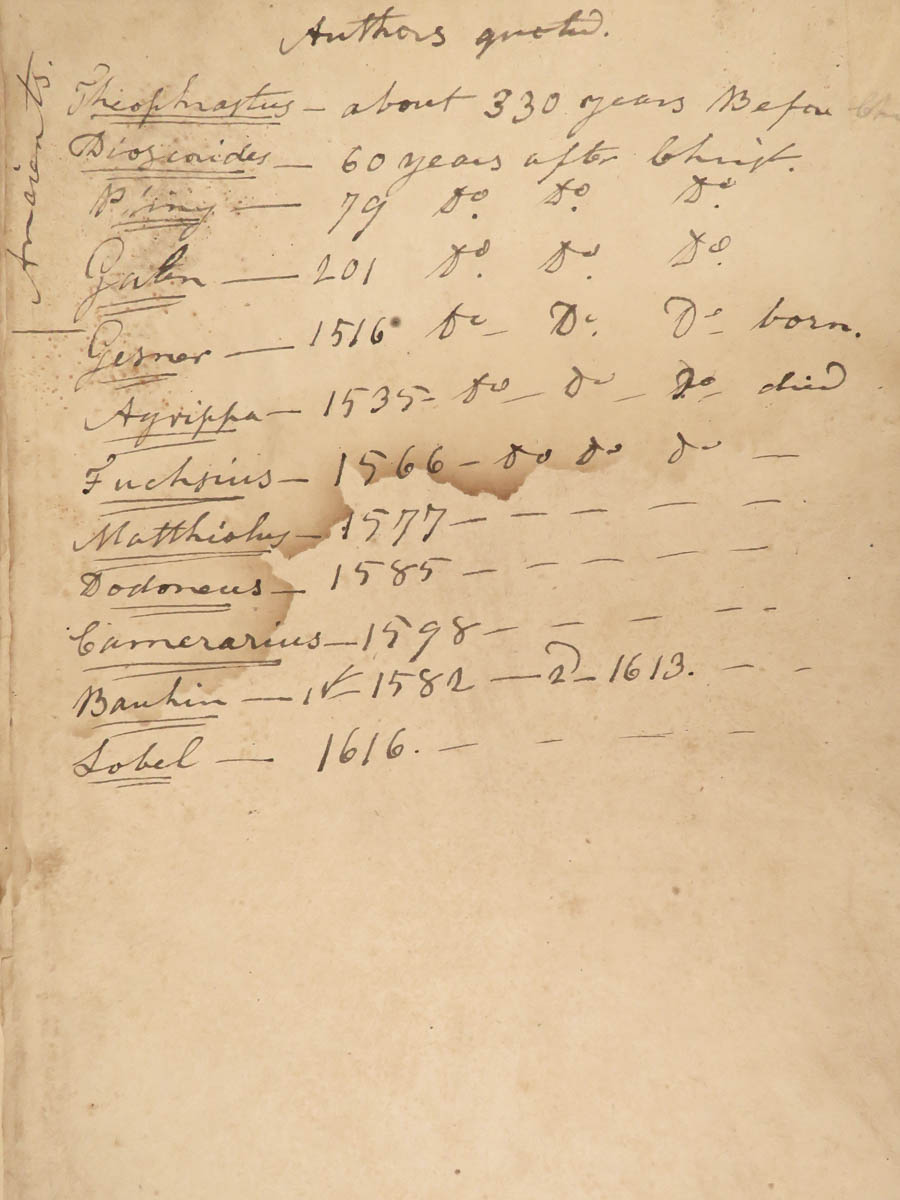 Authors quoted.
Ancients.
Theophrastus — about 330 years Before Chr
Dioscorides — 60 years after Christ.
Pliny — 79 Do. Do. Do.
Galen — 201 Do. Do. Do.
Gesner — 1516 Do — Do. Do — born.
Agrippa — 1535 — Do — Do — Do — died
Fuchsius — 1566 — Do Do Do —
Matthiolus — 1577 — — — — —
Dodoneus — 1585 — — — — —
Camerarius — 1598 — — — — -
Bauhin — 1st 1582 — 2d — 1613. — -
Lobel — 1616. — - — -